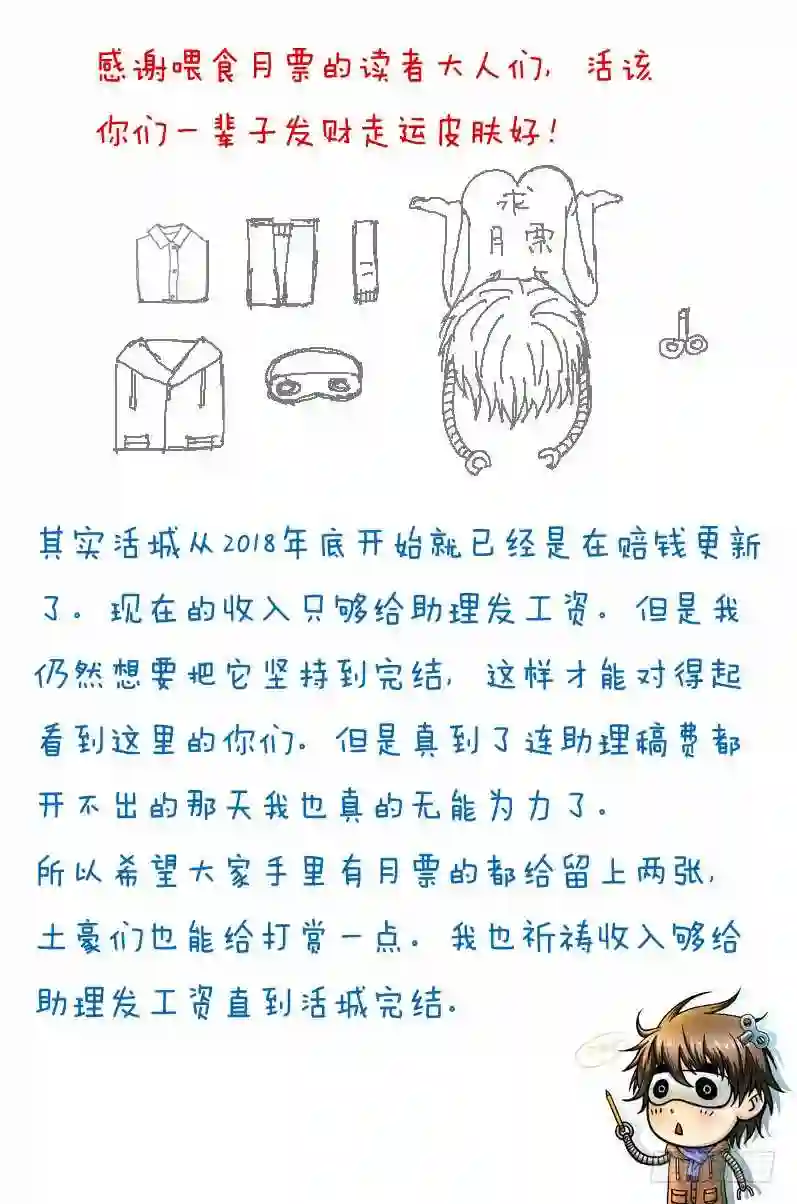 感谢喂食月票的读者大人们，活该
你们一辈子发财走运皮肤好！
求
月票
其实活城从2018年底开始就已经是在赔钱更新
了。现在的收入只够给助理发工资。但是我
仍然想要把它坚持到完结，这样才能对得起
看到这里的你们。但是真到了连助理稿费都
开不出的那天我也真的无能为力了。
所以希望大家手里有月票的都给留上两张，
土豪们也能给打赏一点。我也祈祷收入够给
助理发工资直到活城完结。